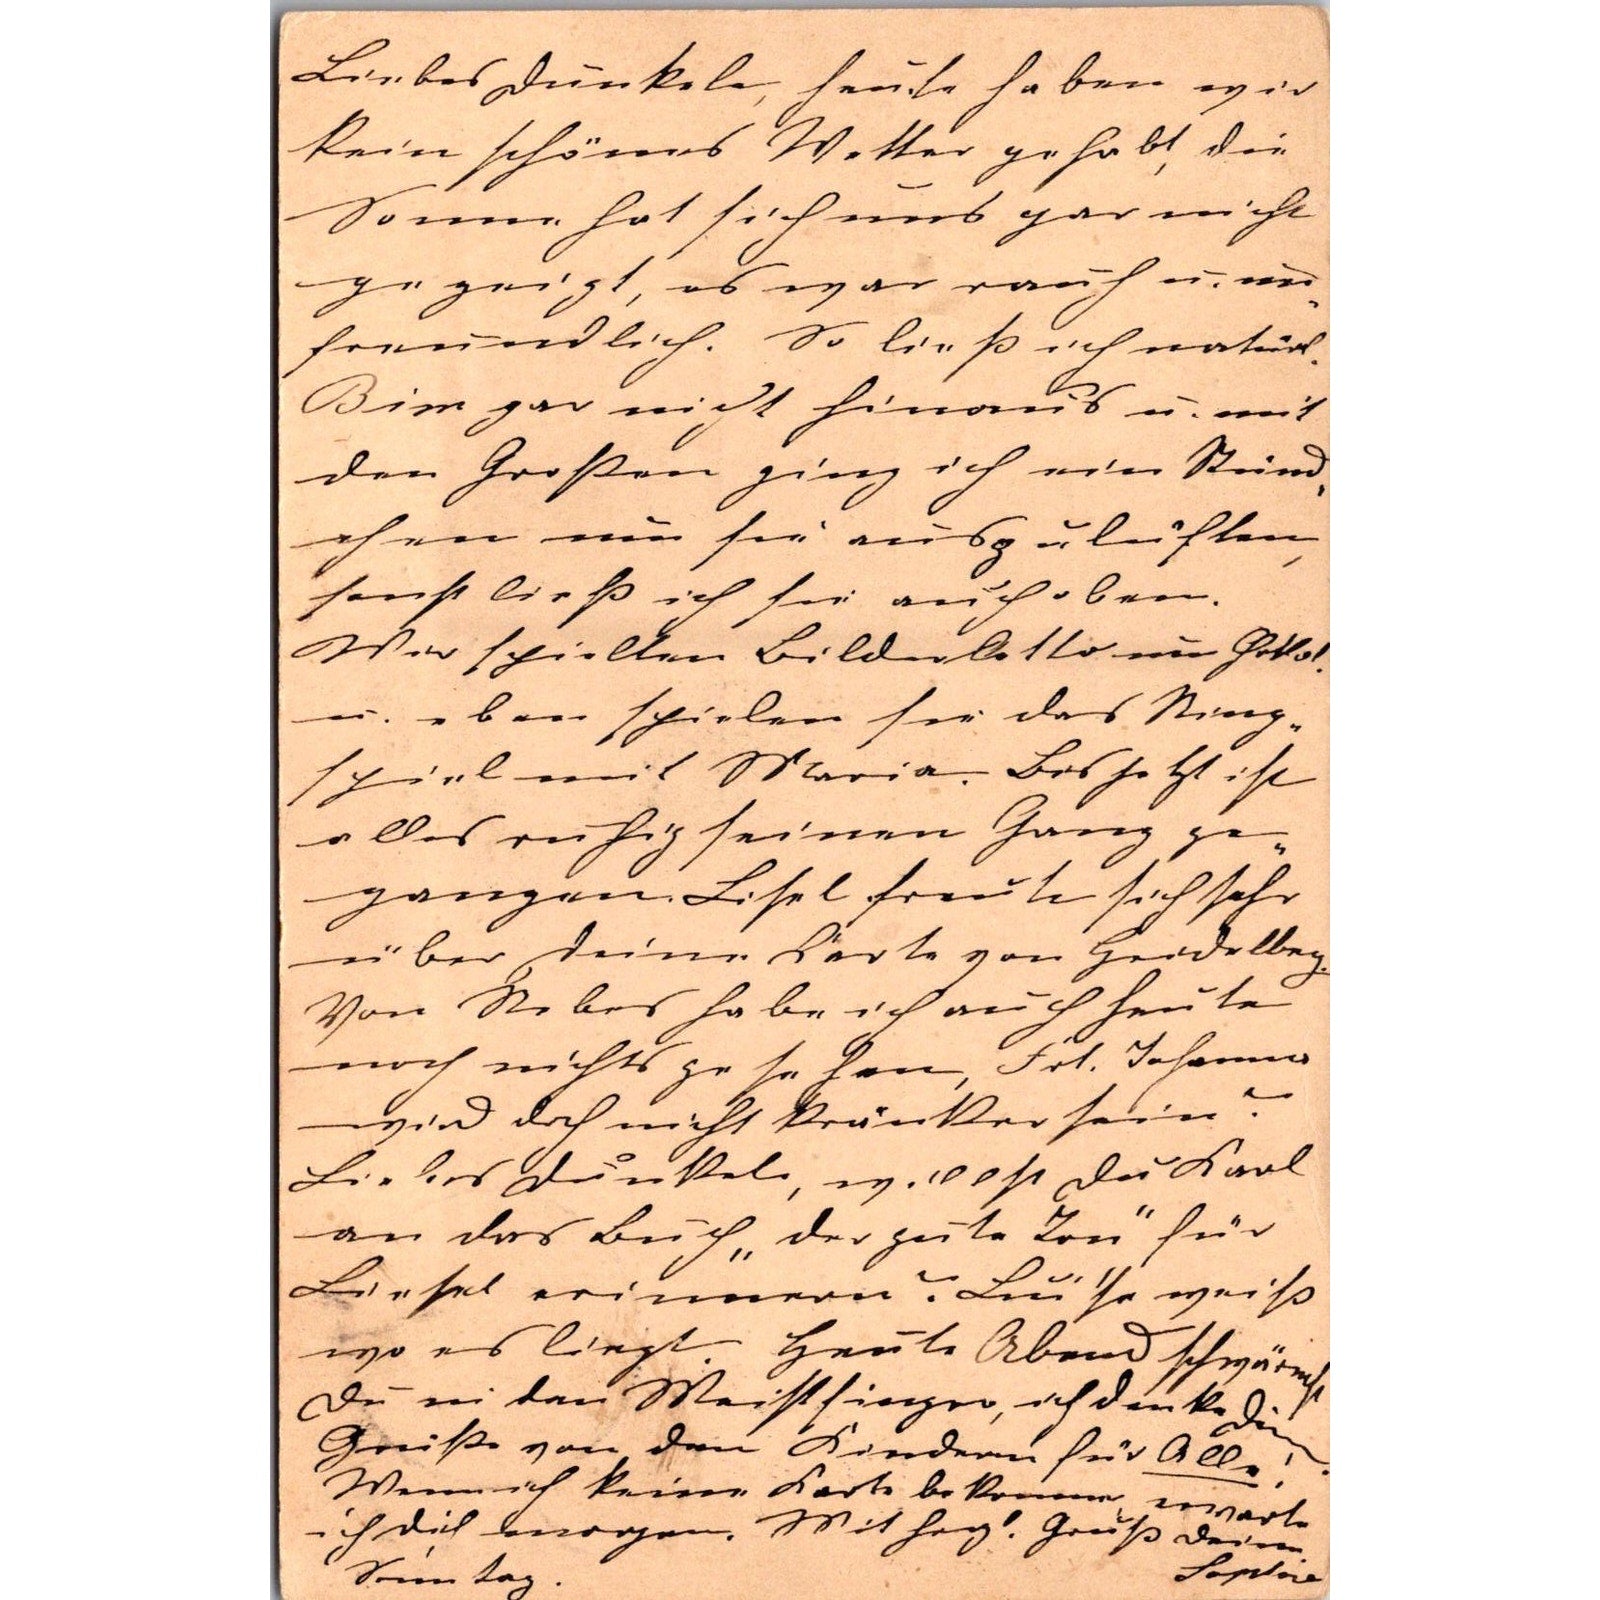 Liebes Dunkele, heute haben wir
kein schönes Wetter gehabt, die
Sonne hat sich uns gar nicht
gezeigt, es war rauh u. un-
freundlich. So ließ ich natürl.
Bim gar nicht hinaus u. mit
den Großen ging ich ein Stünd-
chen um sie auszulüften,
sonst ließ ich sie auch oben.
Wir spielten Bilderlotto im
u. eben spielen sie das Ring-
spiel mit Maria. Bis jetzt ist
alles ruhig seinen Gang ge-
gangen. Lisel freute sich sehr
über deine Karte von Heidelberg.
Von Nebes habe ich auch heute
noch nichts gesehen, Frl. Johanna
wird doch nicht kränker sein?
Liebes Dunkele, willst Du Karl
an das Buch „der gute Ton" für
Liesel erinnern? Luise weiß
wo es liegt. Heute Abend schwärmst
Du in den Meistersinger, ich denke Dein.
Grüße von den Kindern für Alle!
Wenn ich keine Karte bekomme, erwarte
ich dich morgen. Mit herzl. Gruß Deine
Sonntag. Sophie